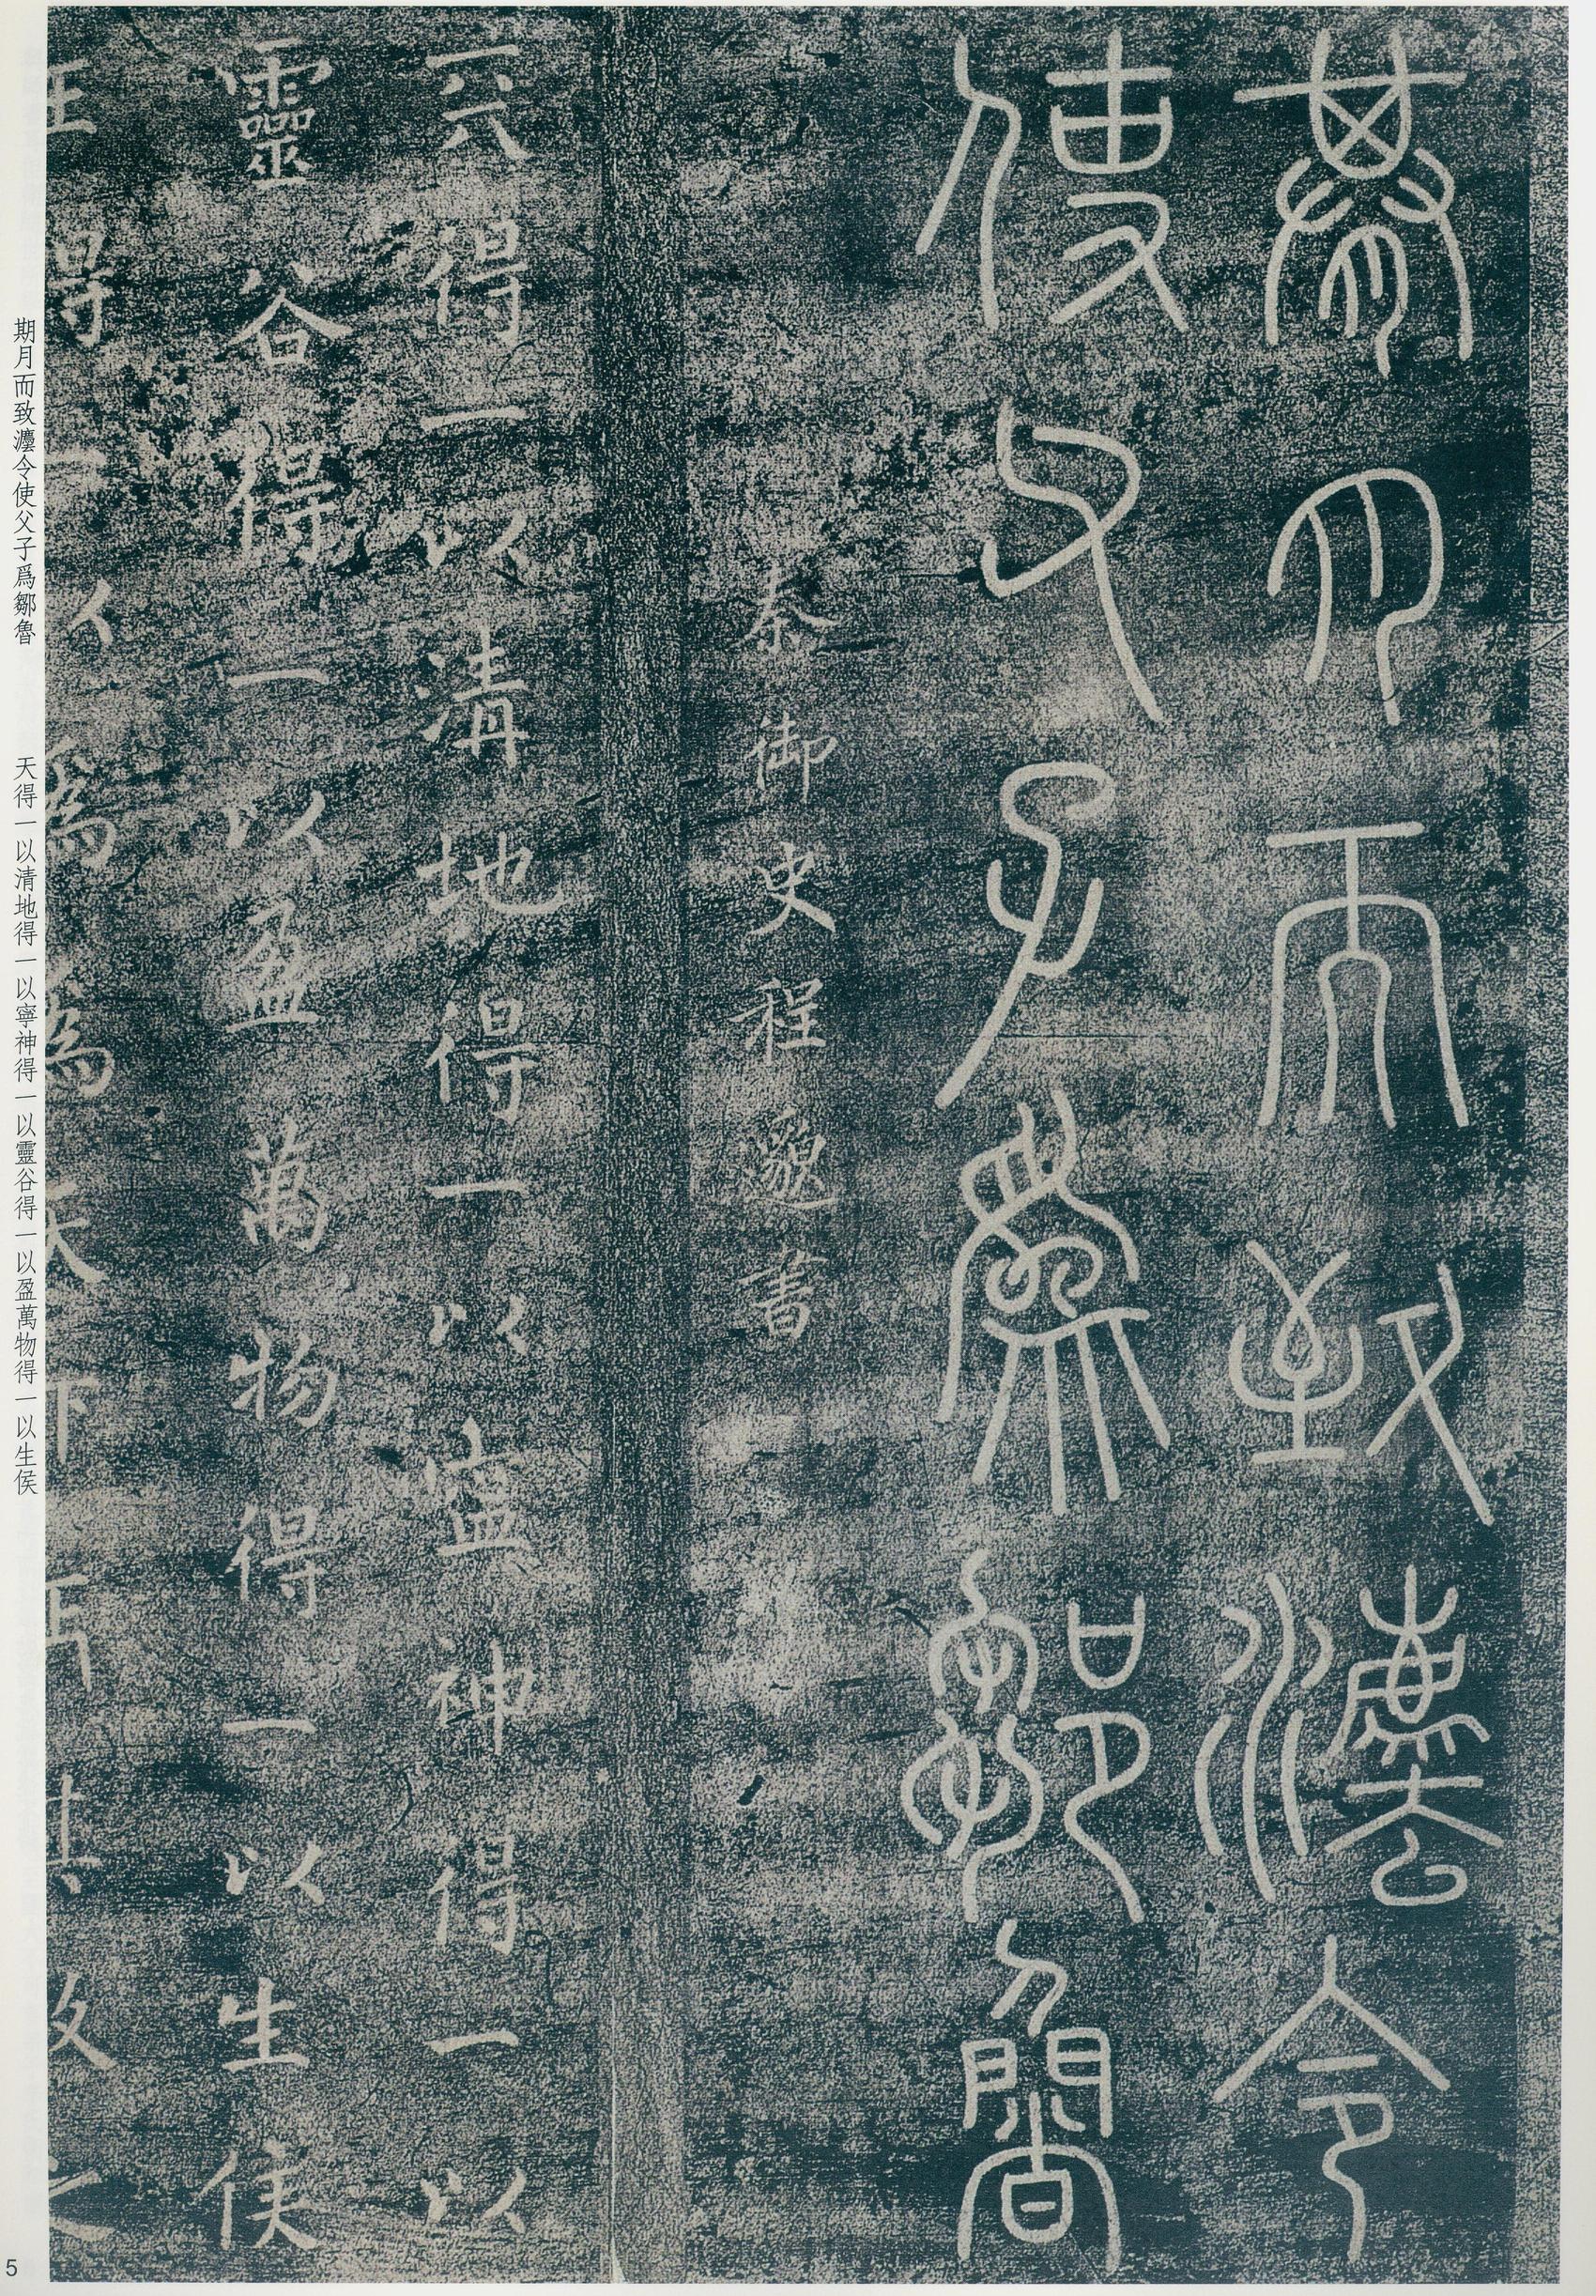 朞月而致灋令
使父子爲鄒魯
秦御史程邈書
天得一以清地得一以寧神得一以
靈谷得一以盈萬物得一以生侯
王得一以為為天下正其致之
期月而致灋令使父子爲鄒魯
天得一以清地得一以寧神得一以靈谷得一以盈萬物得一以生侯
5